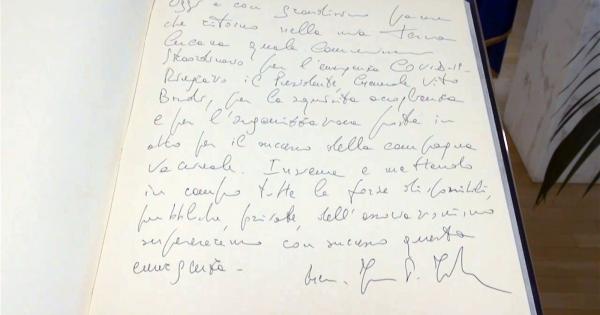 Oggi è con grandissimo piacere
che ritorno nella mia terra
Lucana quale Commissario
Straordinario per l'emergenza COVID-19.
Ringrazio il Presidente Generale Vito
Bardi, per la squisita accoglienza
e per l'organizzazione posta in
atto per il successo della campagna
vaccinale. Insieme e mettendo
in campo tutte le forze disponibili,
pubbliche, private, dell'associazionismo
supereremo con successo questa
emergenza.
Gen.